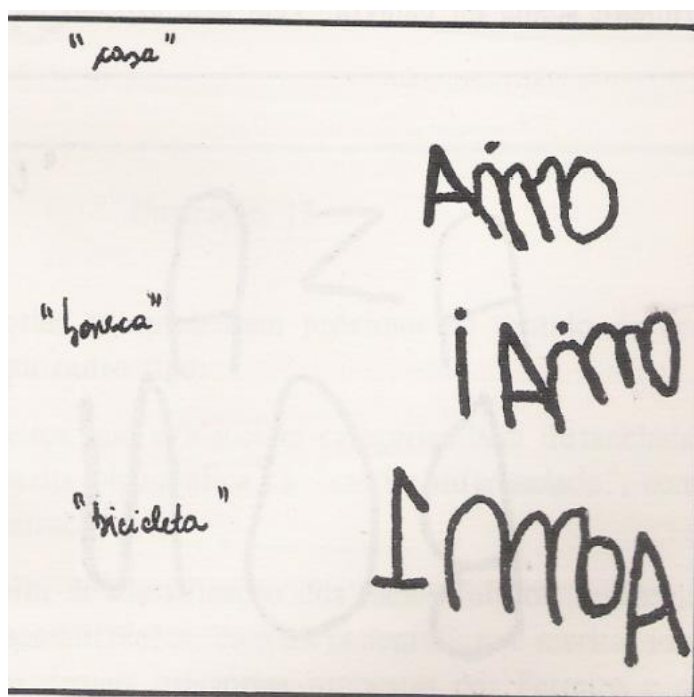 "casa"
Aimo
"boneca"
iAimo
"bicicleta"
ImmoA